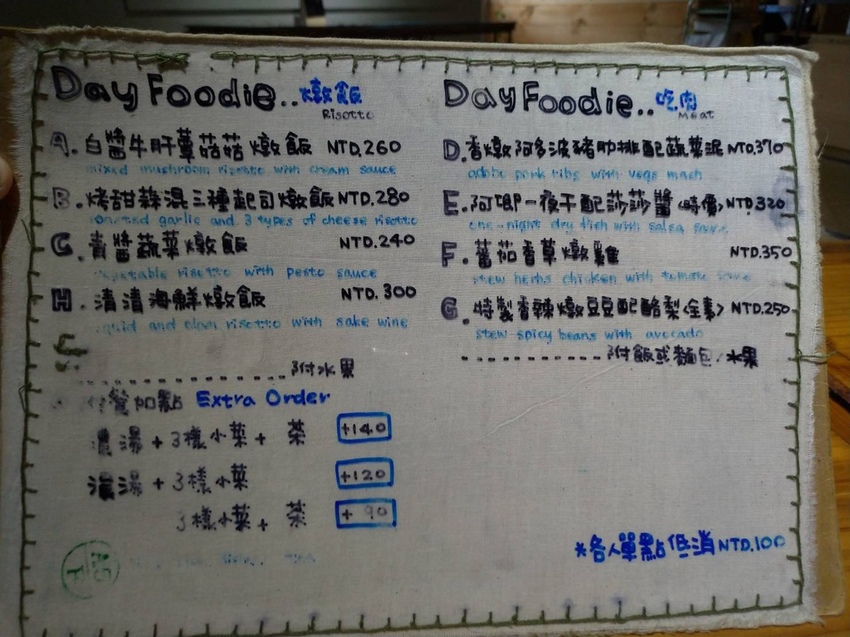 Day Foodie.. 燉飯
Risotto
A. 白醬牛肝蕈菇菇燉飯 NTD.260
mixed mushroom risotto with cream sauce
B. 烤甜蒜混三種起司燉飯 NTD.280
roasted garlic and 3 types of cheese risotto
C. 青醬蔬菜燉飯 NTD.240
vegetable risotto with pesto sauce
H. 清清海鮮燉飯 NTD.300
squid and clam risotto with sake wine
附水果
加點 Extra Order
濃湯 + 3樣小菜 + 茶 +140
濃湯 + 3樣小菜 +120
3樣小菜 + 茶 + 90
Day Foodie.. 吃肉
Meat
D. 香燉阿多波豬肋排配蔬菜泥 NTD.370
adobo pork ribs with vege mash
E. 阿娜一夜干配莎莎醬<時價> NTD.320
one-night dry fish with salsa sauce
F. 蕃茄香草燉雞 NTD.350
stew herbs chicken with tomato sauce
G. 特製香辣燉豆豆配酪梨<全素> NTD.250
stew-spicy beans with avocado
附飯或麵包.水果
*各人單點低消NTD.100